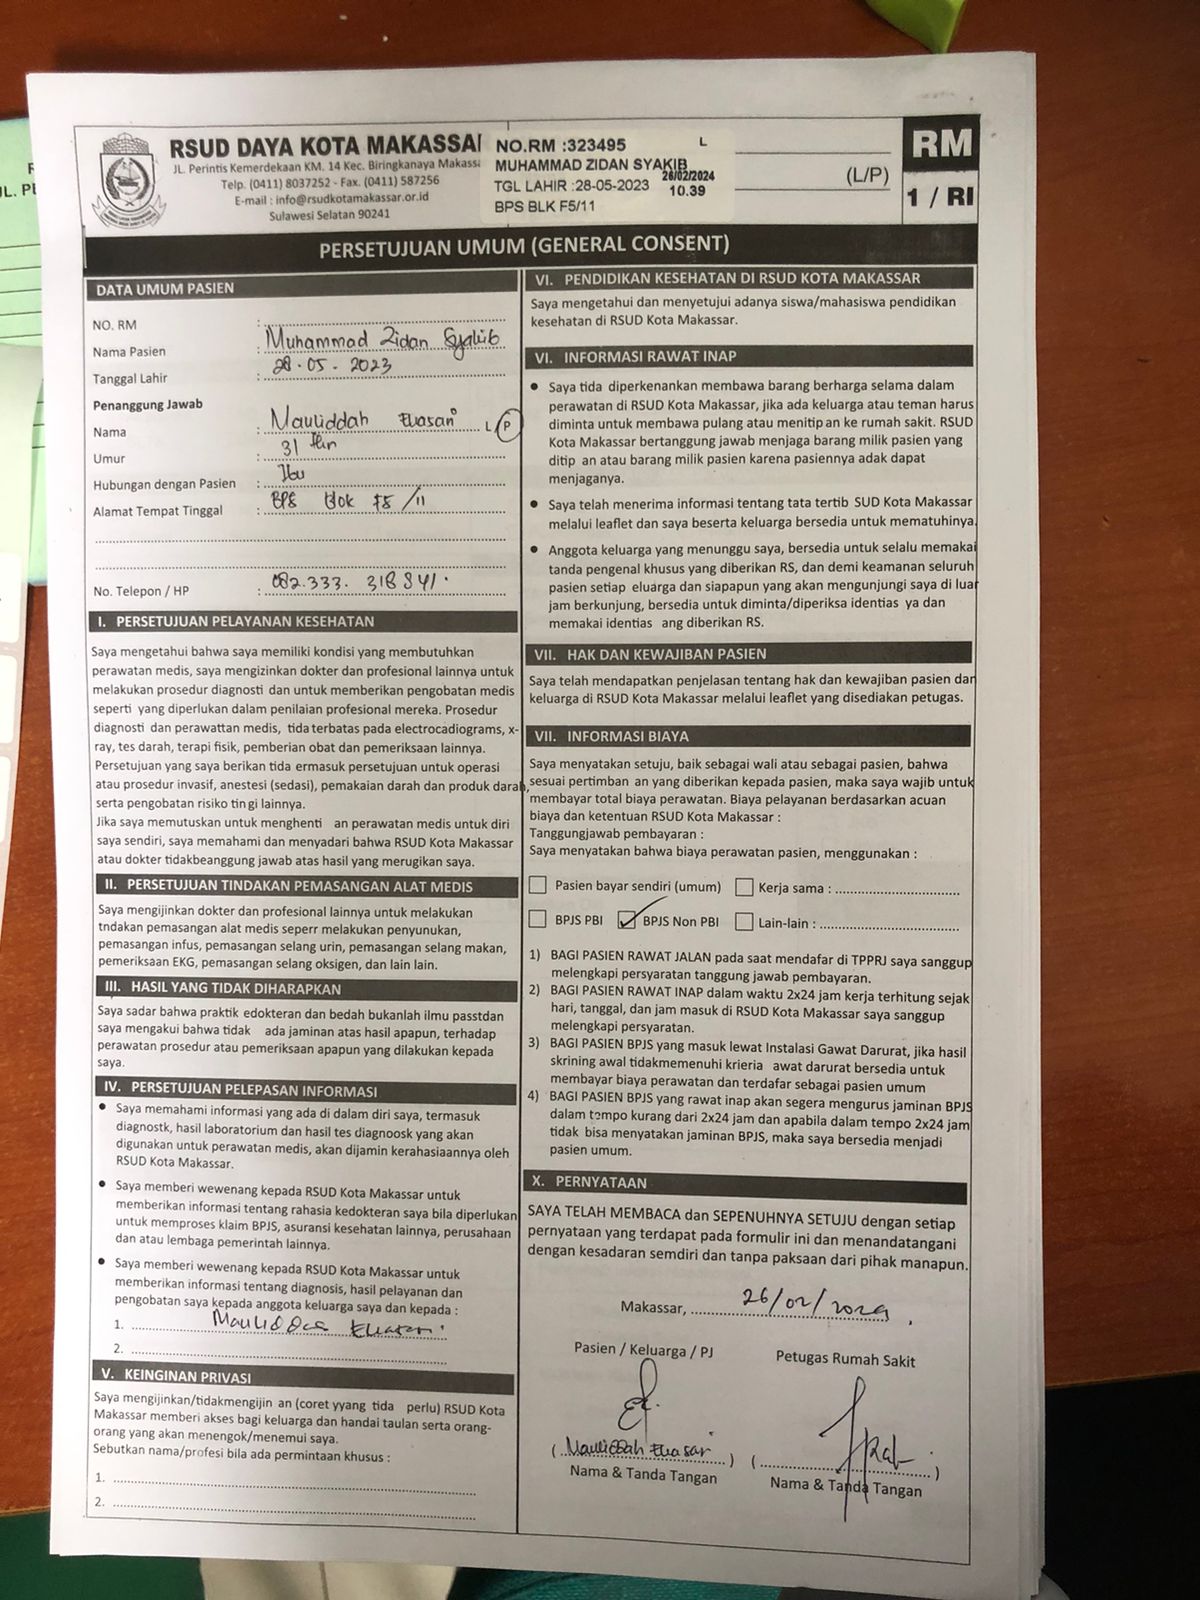 RSUD DAYA KOTA MAKASSAI
JL. Perintis Kemerdekaan KM. 14 Kec. Biringkanaya Makass
Telp. (0411) 8037252 - Fax. (0411) 587256
E-mail : info@rsudkotamakassar.or.id
Sulawesi Selatan 90241
NO.RM :323495 L
MUHAMMAD ZIDAN SYAKIB
26/02/2024
TGL LAHIR :28-05-2023 10.39
BPS BLK F5/11
(L/P)
RM
1 / RI
PERSETUJUAN UMUM (GENERAL CONSENT)
DATA UMUM PASIEN
NO. RM :
Nama Pasien : Muhammad Zidan Syakib
Tanggal Lahir : 28-05-2023
Penanggung Jawab
Nama : Mauliddah L P
Umur : 31 thn
Hubungan dengan Pasien : Ibu
Alamat Tempat Tinggal : BPS Blok F5/11
No. Telepon / HP : 082.333.318
I. PERSETUJUAN PELAYANAN KESEHATAN
Saya mengetahui bahwa saya memiliki kondisi yang membutuhkan
perawatan medis, saya mengizinkan dokter dan profesional lainnya untuk
melakukan prosedur diagnosti dan untuk memberikan pengobatan medis
seperti yang diperlukan dalam penilaian profesional mereka. Prosedur
diagnosti dan perawattan medis, tida terbatas pada electrocadiograms, x-
ray, tes darah, terapi fisik, pemberian obat dan pemeriksaan lainnya.
Persetujuan yang saya berikan tida ermasuk persetujuan untuk operasi
atau prosedur invasif, anestesi (sedasi), pemakaian darah dan produk darah,
serta pengobatan risiko tin gi lainnya.
Jika saya memutuskan untuk menghenti an perawatan medis untuk diri
saya sendiri, saya memahami dan menyadari bahwa RSUD Kota Makassar
atau dokter tidakbeanggung jawab atas hasil yang merugikan saya.
II. PERSETUJUAN TINDAKAN PEMASANGAN ALAT MEDIS
Saya mengijinkan dokter dan profesional lainnya untuk melakukan
tndakan pemasangan alat medis seperr melakukan penyunukan,
pemasangan infus, pemasangan selang urin, pemasangan selang makan,
pemeriksaan EKG, pemasangan selang oksigen, dan lain lain.
III. HASIL YANG TIDAK DIHARAPKAN
Saya sadar bahwa praktik edokteran dan bedah bukanlah ilmu passtdan
saya mengakui bahwa tidak ada jaminan atas hasil apapun, terhadap
perawatan prosedur atau pemeriksaan apapun yang dilakukan kepada
saya.
IV. PERSETUJUAN PELEPASAN INFORMASI
• Saya memahami informasi yang ada di dalam diri saya, termasuk
diagnostk, hasil laboratorium dan hasil tes diagnoosk yang akan
digunakan untuk perawatan medis, akan dijamin kerahasiaannya oleh
RSUD Kota Makassar.
• Saya memberi wewenang kepada RSUD Kota Makassar untuk
memberikan informasi tentang rahasia kedokteran saya bila diperlukan
untuk memproses klaim BPJS, asuransi kesehatan lainnya, perusahaan
dan atau lembaga pemerintah lainnya.
• Saya memberi wewenang kepada RSUD Kota Makassar untuk
memberikan informasi tentang diagnosis, hasil pelayanan dan
pengobatan saya kepada anggota keluarga saya dan kepada :
1.
2.
V. KEINGINAN PRIVASI
Saya mengijinkan/tidakmengijin an (coret yyang tida perlu) RSUD Kota
Makassar memberi akses bagi keluarga dan handai taulan serta orang-
orang yang akan menengok/menemui saya.
Sebutkan nama/profesi bila ada permintaan khusus :
1.
2.
VI. PENDIDIKAN KESEHATAN DI RSUD KOTA MAKASSAR
Saya mengetahui dan menyetujui adanya siswa/mahasiswa pendidikan
kesehatan di RSUD Kota Makassar.
VI. INFORMASI RAWAT INAP
• Saya tida diperkenankan membawa barang berharga selama dalam
perawatan di RSUD Kota Makassar, jika ada keluarga atau teman harus
diminta untuk membawa pulang atau menitip an ke rumah sakit. RSUD
Kota Makassar bertanggung jawab menjaga barang milik pasien yang
ditip an atau barang milik pasien karena pasiennya adak dapat
menjaganya.
• Saya telah menerima informasi tentang tata tertib SUD Kota Makassar
melalui leaflet dan saya beserta keluarga bersedia untuk mematuhinya.
• Anggota keluarga yang menunggu saya, bersedia untuk selalu memakai
tanda pengenal khusus yang diberikan RS, dan demi keamanan seluruh
pasien setiap eluarga dan siapapun yang akan mengunjungi saya di luar
jam berkunjung, bersedia untuk diminta/diperiksa identias ya dan
memakai identias ang diberikan RS.
VII. HAK DAN KEWAJIBAN PASIEN
Saya telah mendapatkan penjelasan tentang hak dan kewajiban pasien dan
keluarga di RSUD Kota Makassar melalui leaflet yang disediakan petugas.
VII. INFORMASI BIAYA
Saya menyatakan setuju, baik sebagai wali atau sebagai pasien, bahwa
sesuai pertimban an yang diberikan kepada pasien, maka saya wajib untuk
membayar total biaya perawatan. Biaya pelayanan berdasarkan acuan
biaya dan ketentuan RSUD Kota Makassar :
Tanggungjawab pembayaran :
Saya menyatakan bahwa biaya perawatan pasien, menggunakan :
Pasien bayar sendiri (umum) Kerja sama :
BPJS PBI BPJS Non PBI Lain-lain :
1) BAGI PASIEN RAWAT JALAN pada saat mendafar di TPPRJ saya sanggup
melengkapi persyaratan tanggung jawab pembayaran.
2) BAGI PASIEN RAWAT INAP dalam waktu 2x24 jam kerja terhitung sejak
hari, tanggal, dan jam masuk di RSUD Kota Makassar saya sanggup
melengkapi persyaratan.
3) BAGI PASIEN BPJS yang masuk lewat Instalasi Gawat Darurat, jika hasil
skrining awal tidakmemenuhi krieria awat darurat bersedia untuk
membayar biaya perawatan dan terdafar sebagai pasien umum
4) BAGI PASIEN BPJS yang rawat inap akan segera mengurus jaminan BPJS
dalam tempo kurang dari 2x24 jam dan apabila dalam tempo 2x24 jam
tidak bisa menyatakan jaminan BPJS, maka saya bersedia menjadi
pasien umum.
X. PERNYATAAN
SAYA TELAH MEMBACA dan SEPENUHNYA SETUJU dengan setiap
pernyataan yang terdapat pada formulir ini dan menandatangani
dengan kesadaran semdiri dan tanpa paksaan dari pihak manapun.
Makassar, 26/02/2024
Pasien / Keluarga / PJ Petugas Rumah Sakit
(Mauliddah ) ( )
Nama & Tanda Tangan Nama & Tanda Tangan